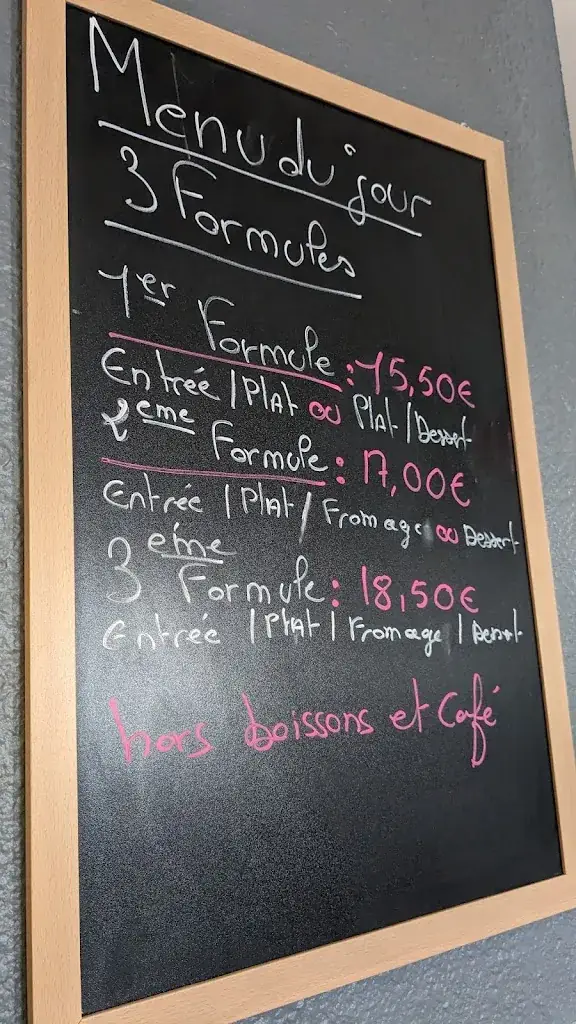 Menu du jour
3 Formules
1er Formule : 15,50€
Entrée / Plat ou Plat / Dessert
2eme Formule : 17,00€
Entrée / Plat / Fromage ou Dessert
3eme Formule : 18,50€
Entrée / Plat / Fromage / Dessert
hors boissons et Café